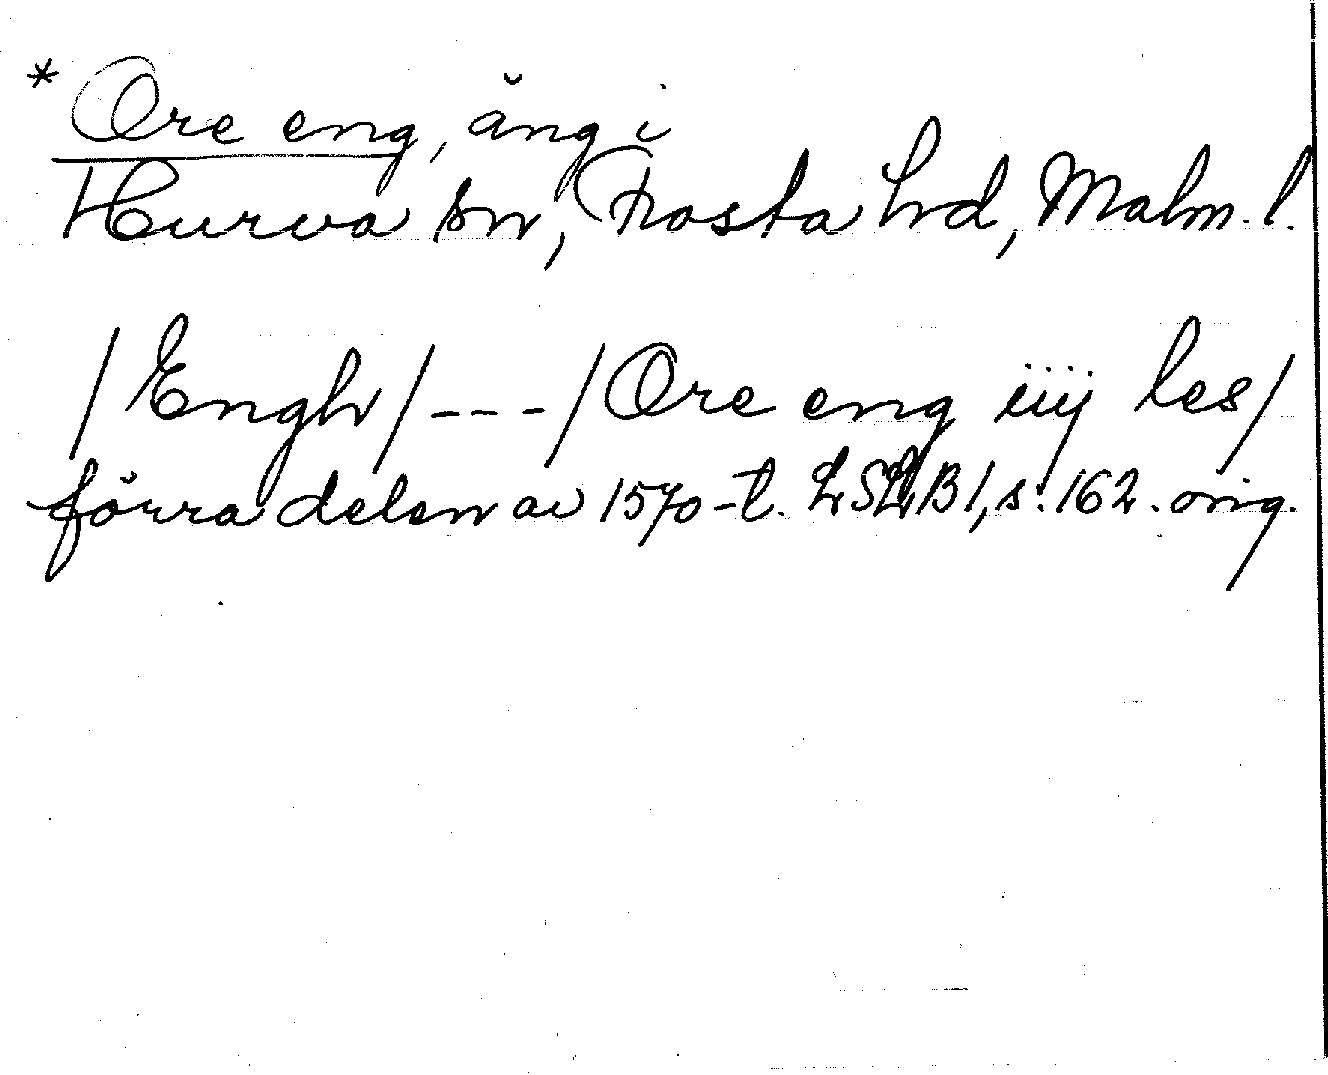 * Ore eng, äng i
Hurva sn, Frosta hd, Malm. l.
/Engh/---/Ore eng iiij les/
förra delen av 1570-t. LSLB 1, s. 162. orig.